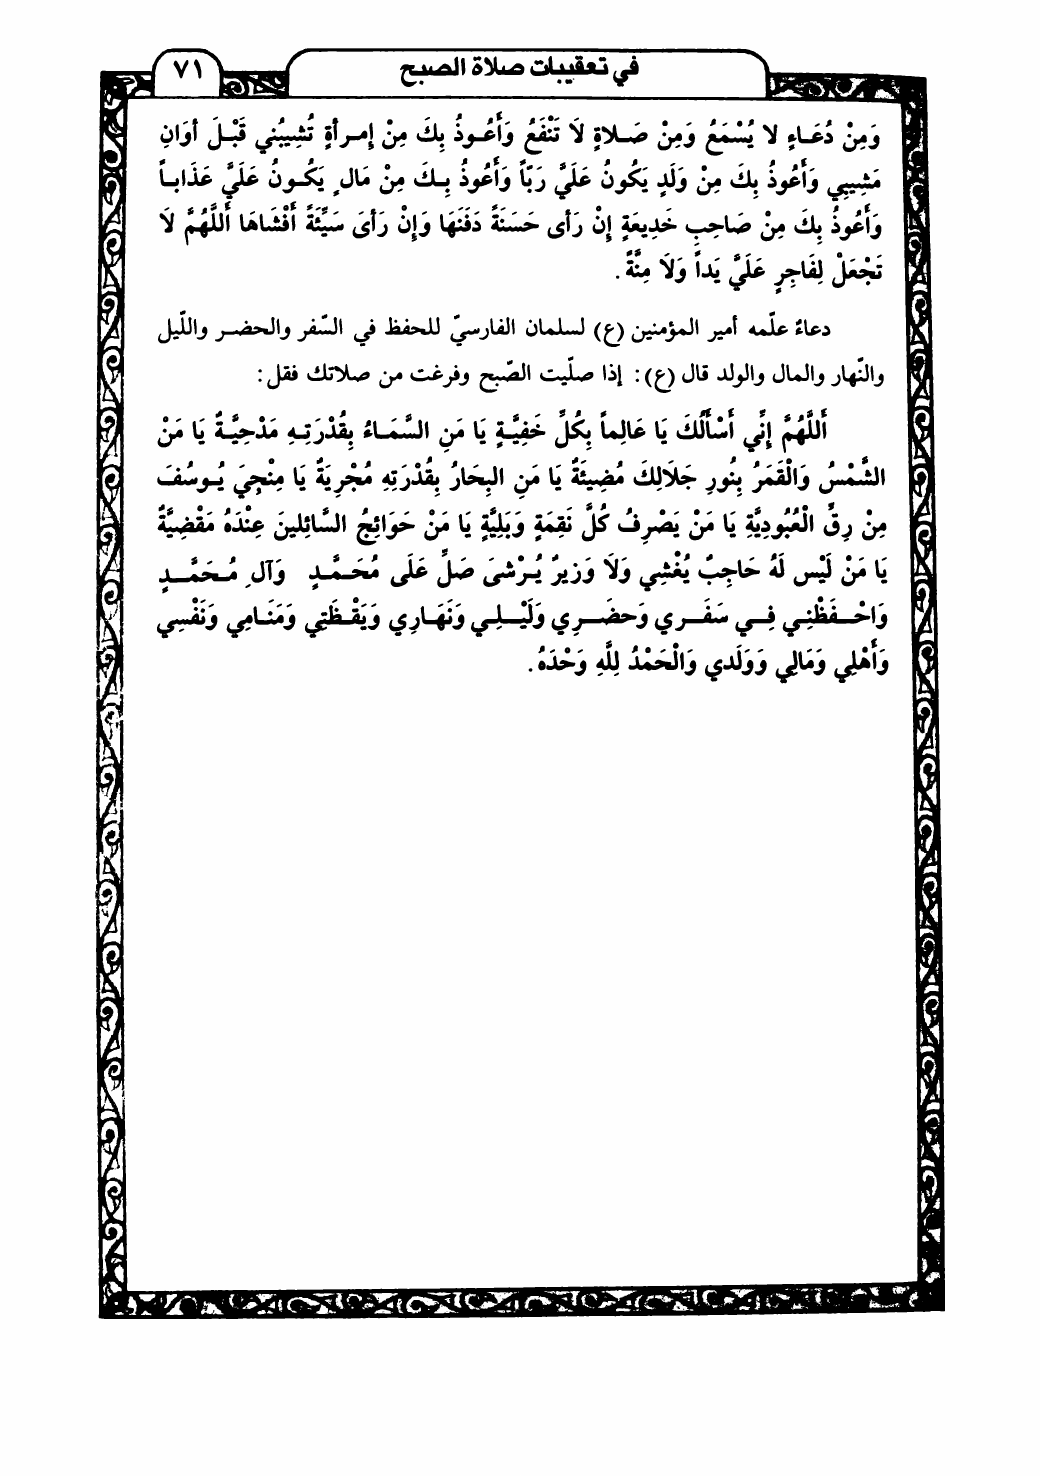 في تعقيبات صلاة الصبح
٧١
وَمِنْ دُعَـاءٍ لا يُسْمَعُ وَمِنْ صَـلاةٍ لَا تَنْفَعُ وَأَعُـوذُ بِكَ مِنْ إِمـرأةٍ تُشِيبُني قَبْـلَ أوَانِ
مَشِيبِي وَأَعُوذُ بِكَ مِنْ وَلَدٍ يَكُونُ عَلَيَّ رَبّاً وَأَعُوذُ بِـكَ مِنْ مَالٍ يَكُـونُ عَلَيَّ عَذَابـاً
وَأَعُوذُ بِكَ مِنْ صَاحِبِ خَدِيعَةٍ إِنْ رَأى حَسَنَةً دَفَنَهَا وَإِنْ رَأىَ سَيِّئَةً أَفْشَاهَا اَللَّهُمَّ لَا
تَجْعَلْ لِفَاجِرٍ عَلَيَّ يَداً وَلَا مِنَّةً.
دعاءً علّمه أمير المؤمنين (ع) لسلمان الفارسيّ للحفظ في السّفر والحضـر واللّيل
والنّهار والمال والولد قال (ع): إذا صلّيت الصّبح وفرغت من صلاتك فقل:
أَللَّهُمَّ إِنِّي أَسْأَلُكَ يَا عَالِماً بِكُلِّ خَفِيَّـةٍ يَا مَنِ السَّمَـاءُ بِقُدْرَتِـهِ مَدْحِيَّـةٌ يَا مَنْ
الشَّمْسُ وَالْقَمَرُ بِنُورِ جَلَالِكَ مُضِيئَةٌ يَا مَنِ البِحَارُ بِقُدْرَتِهِ مُجْرِيَةٌ يَا مِنْجِيَ يُـوسُفَ
مِنْ رِقِّ الْعُبُودِيَّةِ يَا مَنْ يَصْرِفُ كُلَّ نَقِمَةٍ وَبَلِيَّةٍ يَا مَنْ حَوَائِجُ السَّائِلينَ عِنْدَهُ مَقْضِيَّةٌ
يَا مَنْ لَيْس لَهُ حَاجِبٌ يُغْشِي وَلَا وَزيرٌ يُـرْشىَ صَلِّ عَلَى مُحَـمَّـدٍ وَآلِ مُـحَمَّـدٍ
وَاحْـفَظْنِـي فِـي سَفَـرِي وَحضَـرِي وَلَيْـلِـي وَنَهَـارِي وَيَقْـظَتِي وَمَنَـامِي وَنَفْسِي
وَأَهْلِي وَمَالِي وَوَلَدي وَالْحَمْدُ لِلَّهِ وَحْدَهُ.